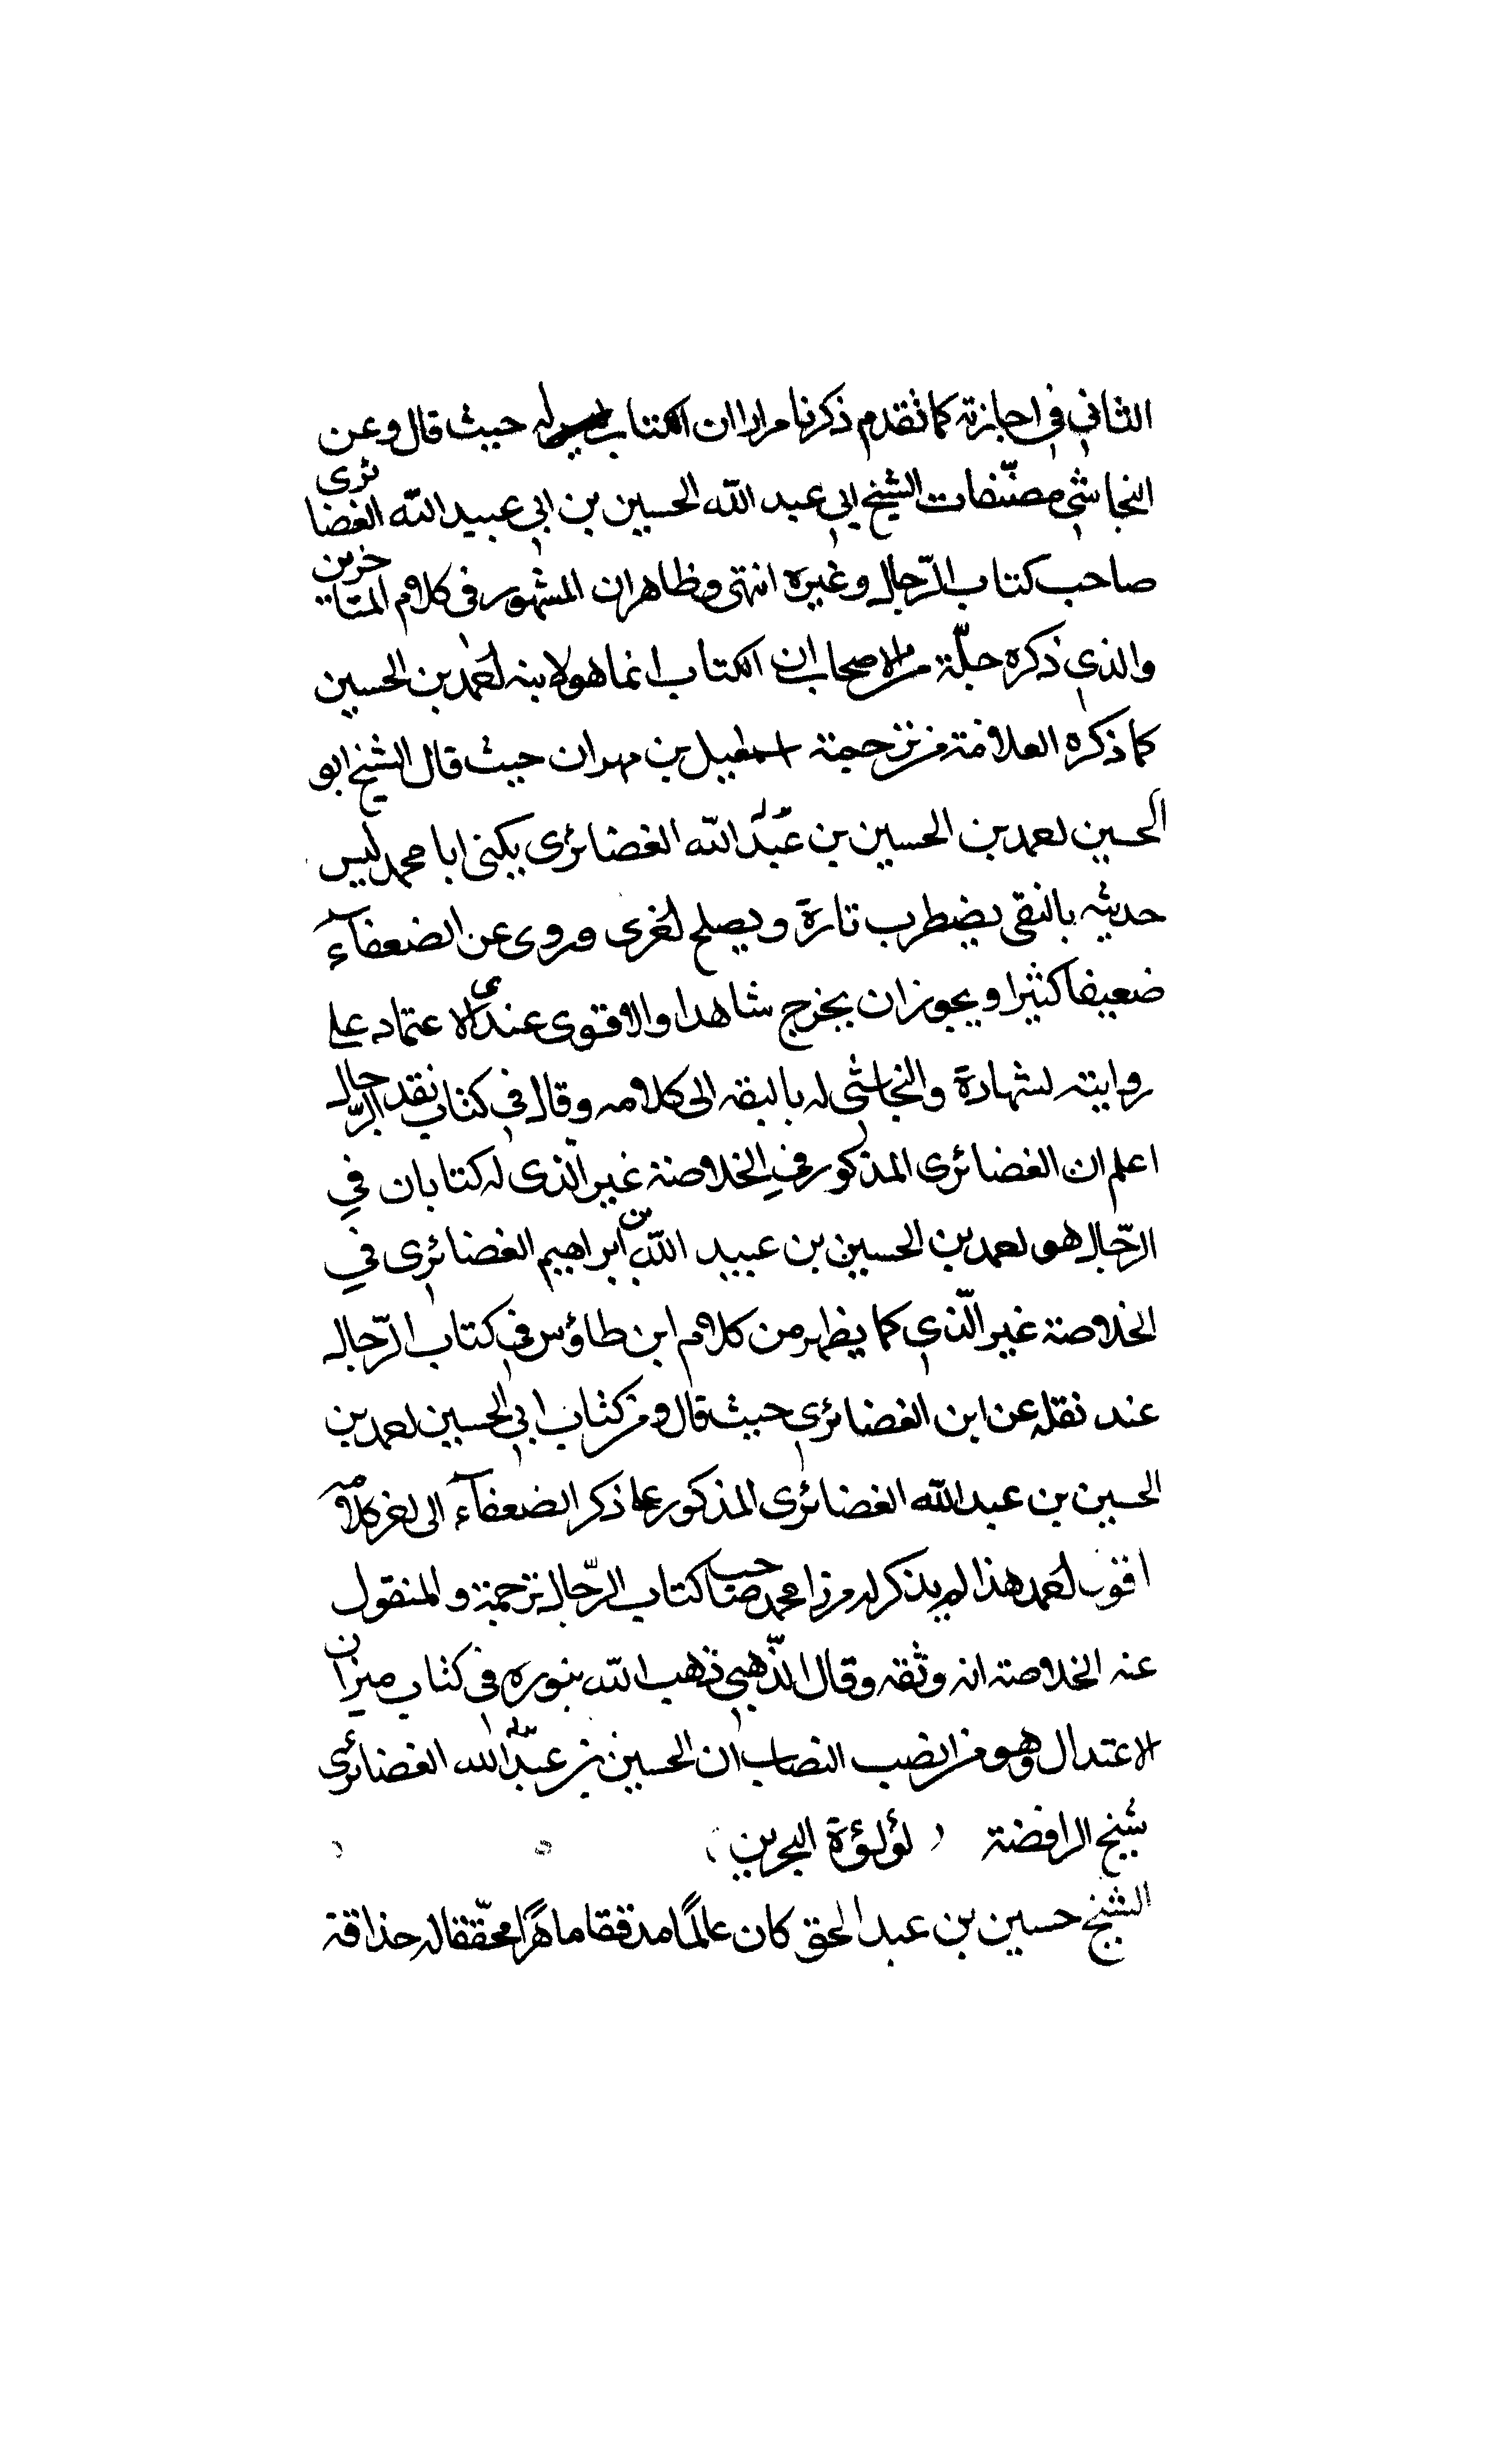 الثاني في اجازته كما تقدم ذكرنا مرارا ان الكتاب ليس له حيث قال وعن
النجاشي مصنّفات الشيخ ابي عبد الله الحسين بن ابي عبيد الله الغضائرى
صاحب كتاب الرّجال وغيره انتهى وظاهر ان المشهور في كلام المتاخرين
والذي ذكره جلّة من الاصحاب ان الكتاب انما هو لابنه احمد بن الحسين
كما ذكره العلامة في ترجمة اسمعيل بن مهران حيث قال الشيخ ابو
الحسين احمد بن الحسين بن عبيد الله الغضائرى يكنى ابا محمد ليس
حديثه بالنقى يضطرب تارة ويصلح اخرى وروى عن الضعفآء
ضعيفا كثيرا ويجوز ان يخرج شاهدا والاقوى عندى الاعتماد على
روايته لشهادة والنجاشى له بالثقه الى كلامه وقال في كتاب نقد الرّجال
اعلم ان الغضائرى المذكور في الخلاصة غير الّذى له كتابان في
الرّجال هو احمد بن الحسين بن عبيد الله بن ابراهيم الغضائرى في
الخلاصة غير الّذي كما يظهر من كلام ابن طاؤس في كتاب الرّجال
عند نقله عن ابن الغضائرى حيث قال ومن كتاب ابي الحسين احمد بن
الحسين بن عبد الله الغضائرى المذكور على ذكر الضعفآء الى اخر كلامه
اقول احمد هذا لم يذكر له مرزا محمد صاحب كتاب الرّجال ترجمة والمنقول
عنه الخلاصته انه وثقه وقال الذّهبي ذهب الله بنوره في كتاب ميزان
الاعتدال وهو من انصب النصاب ان الحسين بن عبيد الله الغضائرى
شيخ الرافضة لؤلؤة البحرين
الشيخ حسين بن عبد الحق كان عالمًا مدققا ماهرًا محقّقا له حذاقة